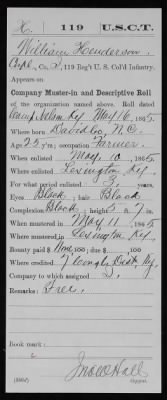 H. 119 U.S.C.T.
William Henderson
Corpl, Co. I, 119 Reg't U. S. Col'd Infantry.
Appears on
Company Muster-in and Descriptive Roll
of the organization named above. Roll dated
Camp Nelson Ky May 16, 1865.
Where born Davidson, N.C.
Age 25 y'rs; occupation Farmer
When enlisted May 10, 1865.
Where enlisted Lexington Ky.
For what period enlisted 3 years.
Eyes Black; hair Black
Complexion Black; height 5 ft. 7 in.
When mustered in May 11, 1865.
Where mustered in Lexington Ky.
Bounty paid $ None 100; due $ 100
Where credited 7 Congl Dist, Ky.
Company to which assigned
Remarks: Free.
Book mark:
Hall
Copyist.